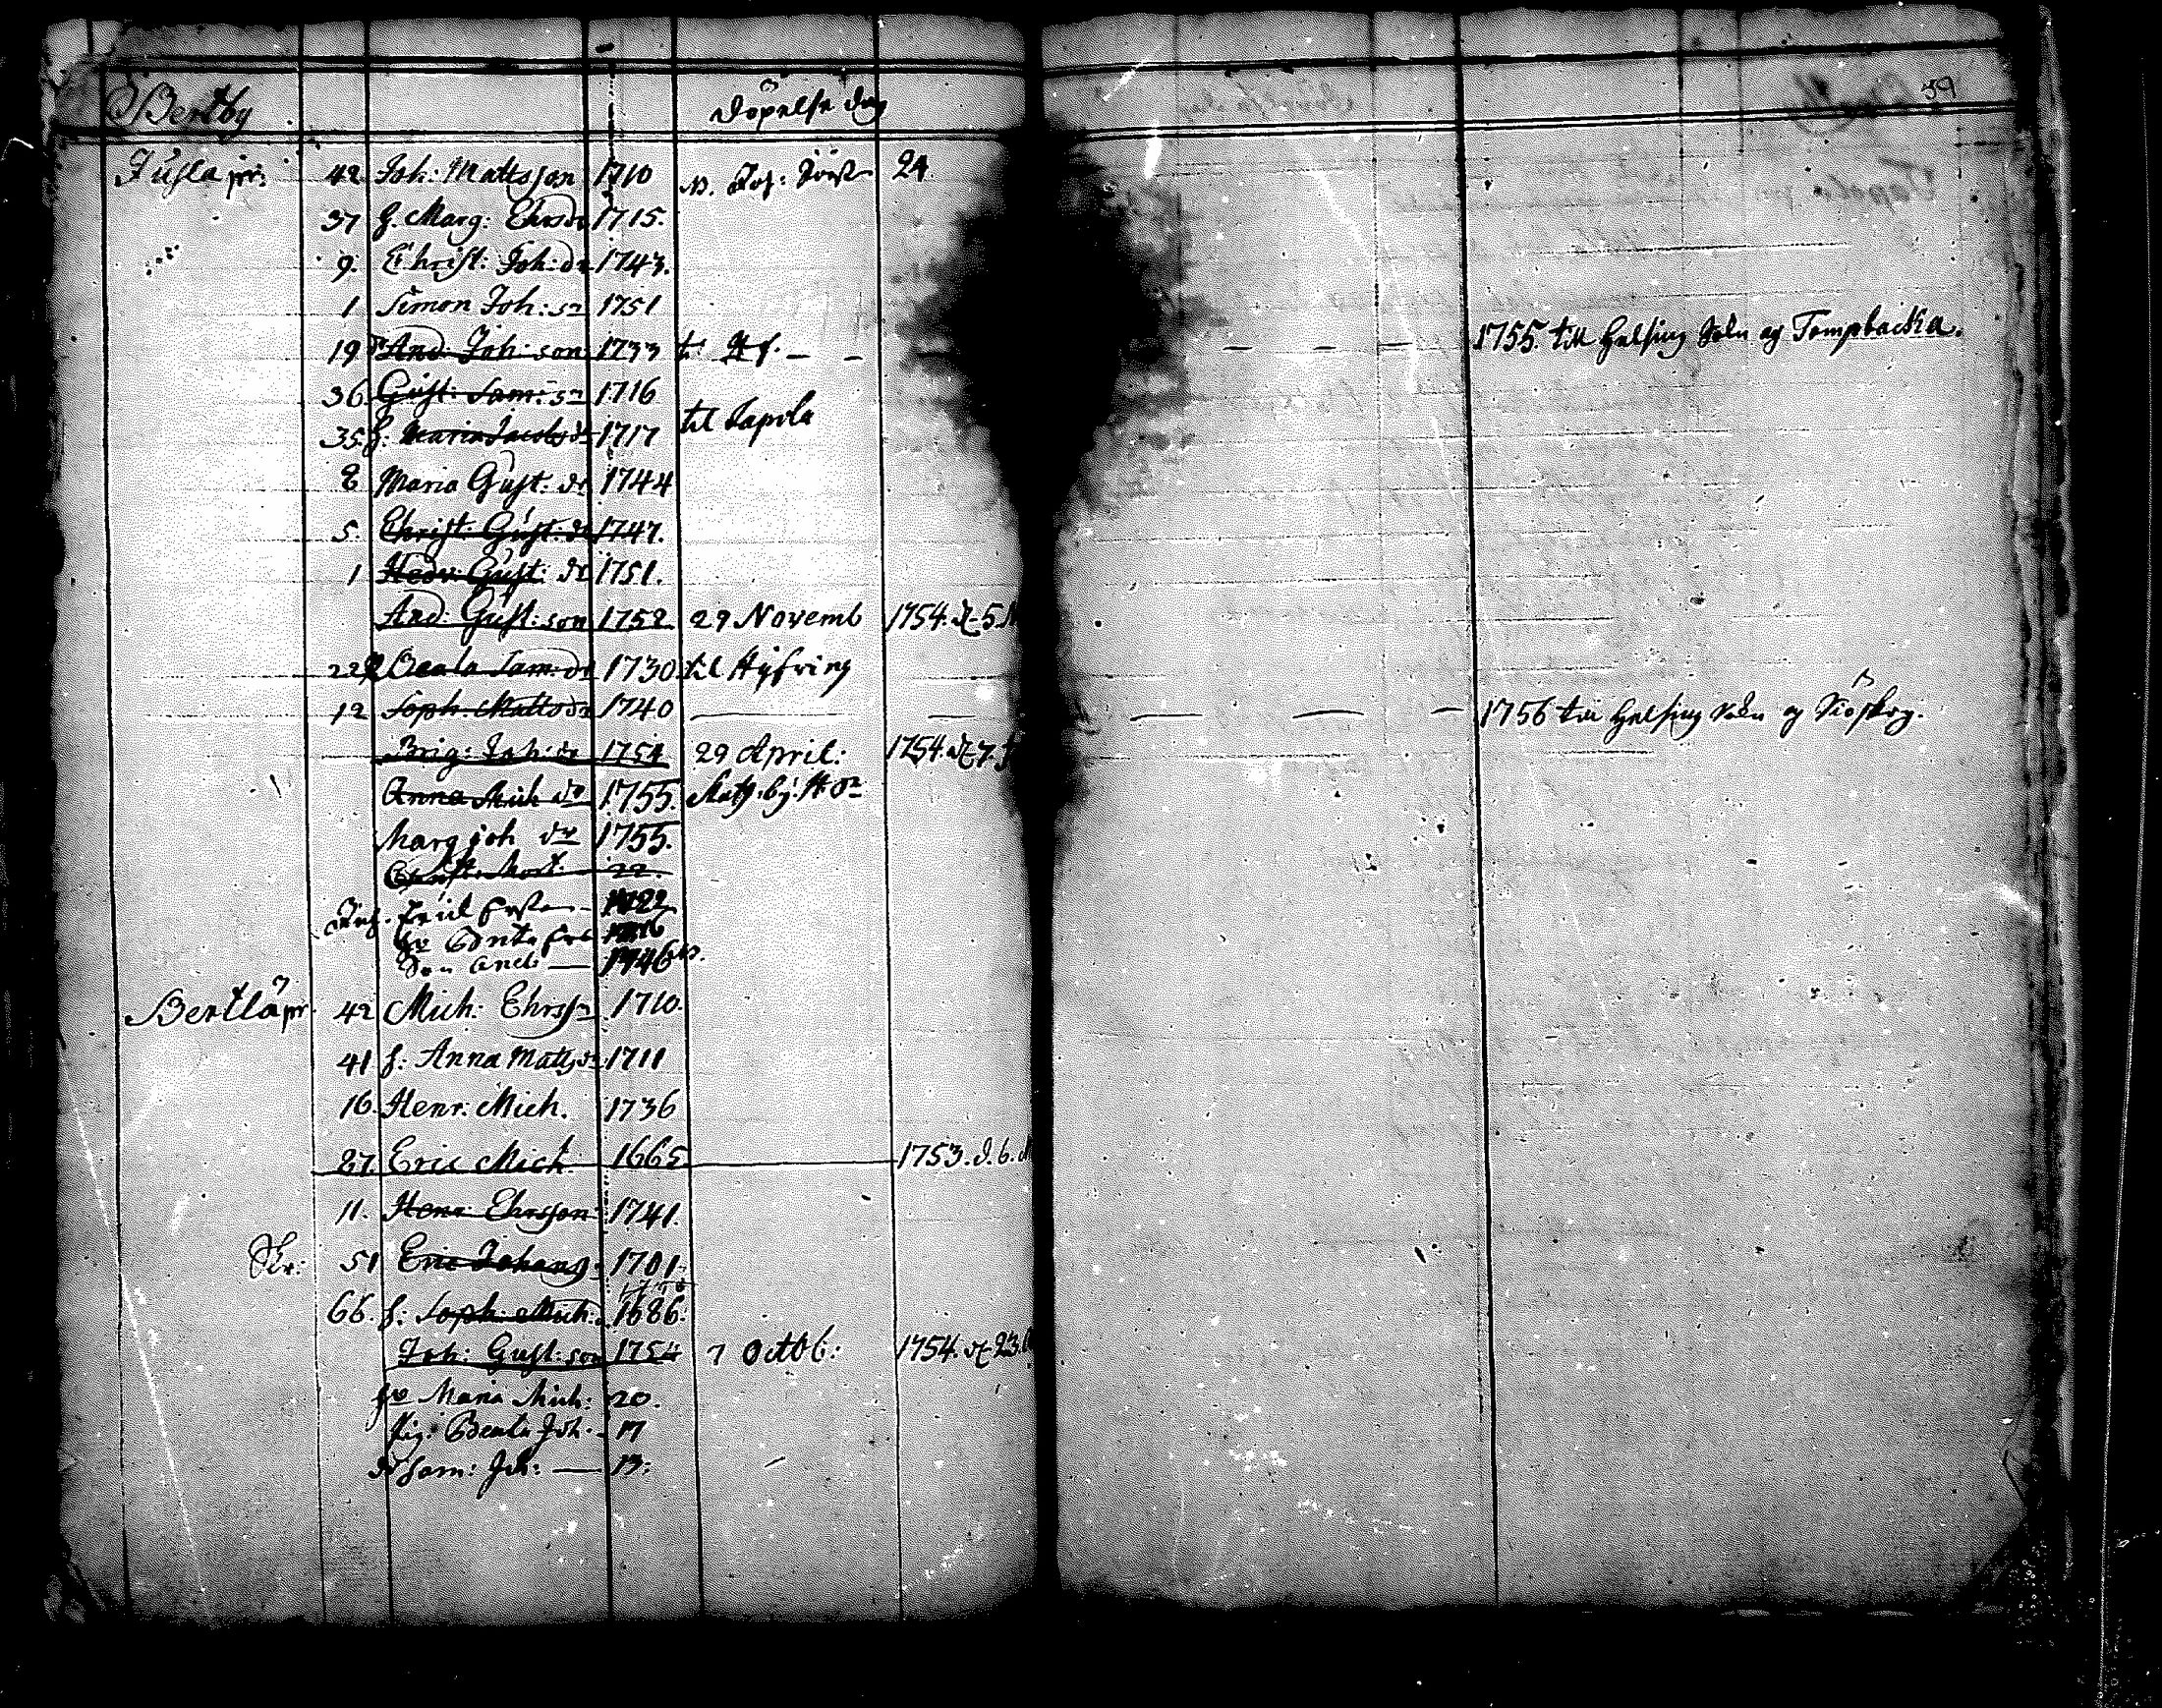 Bertby Döpelse dag 59
Jusla pr: 42 Joh: Mattsson 1710 24
37 h. Marg: Ehrsdr 1715.
9. Christ: Joh: dr 1743.
1 Simon Joh: sn 1751
19 And: Joh: son 1733 1755. till Helsing Sokn og Tompbacka.
36 Gust: Sam: sn 1716
35 h. Maria Jacobs dr 1717 til Tapola
8 Maria Gust: dr 1744
5. Christ: Gust: dr 1747.
1 Hedv: Gust: dr 1751.
And: Gust: son 1752 29 Novemb 1754. d. 5.
22 Beata Sam: dr 1730 til Hyfving
12 Soph: Matts dr 1740 1756 till Helsing Sokn og
Brig: Joh: dr 1754 29 April: 1754. d. 7.
Anna Mich dr 1755.
Marg joh dr 1755.
Christ: Mort: 22
Eric 1722
hu Beata
Son And: 1746
Bertlä pr. 42 Mich: Ehrss: 1710.
41 h: Anna Matts dr 1711
16. Henr: Mich. 1736
87. Eric Mich: 1665 1753. d. 6.
11. Henr: Ehrsson 1741.
51 Eric Johans: 1701
66. h: Soph: Mich: 1686.
Joh: Gust: son 1754 7 Octob: 1754. d. 23.
hu Maria Mich: 20.
Pig: Beata Joh: 17
dr Sam: Joh: 13: